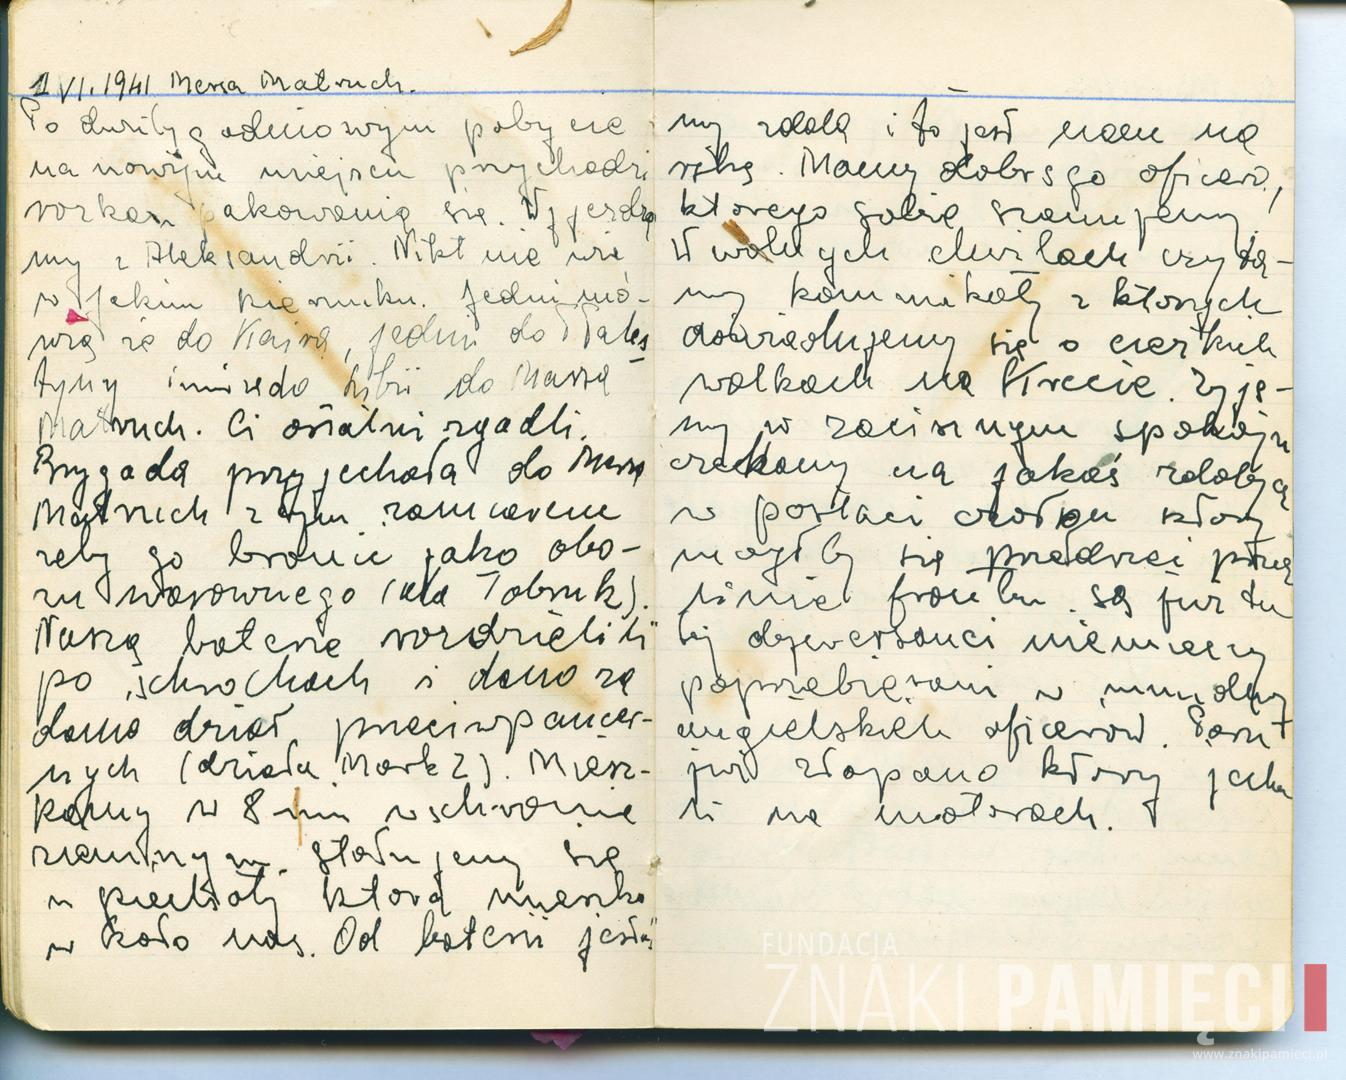 1 VI. 1941 Mersa Matruch.
Po dwutygodniowym pobycie
na nowym miejscu przychodzi
rozkaz pakowania się. Wyjeżdża
my z Aleksandrii. Nikt nie wie
w jakim kierunku. Jedni mó-
wią że do Kairu, jedni do Pales
tyny i inni że do Libii do Marsa
Matruch. Ci ostatni zgadli.
Brygada przyjechała do Mersa
Matruch z tym zamiarem
żeby go bronić jako obo-
zu warownego (ala Tobruk).
Naszą baterię rozdzielili
po schronach i dano za
dano dział przeciwpancer-
nych (działa Mark 2). Miesz-
kamy w 8-miu w schronie
ziemnym. Stołujemy się
u piechoty która mieszka
w koło nas. Od baterii jesteś
my zdala i to jest nam na
rękę. Mamy dobrego oficera,
którego sobie szanujemy.
W wolnych chwilach czyta-
my komunikaty z których
dowiadujemy się o ciężkich
walkach na Krecie. Żyje-
my w zacisznym spokoju
czekamy na jakąś zdobycz
w postaci czołgu który
mógłby się przedrzeć przez
linię frontu. Są już tu
taj dywersanci niemieccy
poprzebierani w mundury
angielskich oficerów. Paru
już złapano którzy jecha
li na motorach.
FUNDACJA
ZNAKI PAMIĘCI
www.znakipamieci.pl